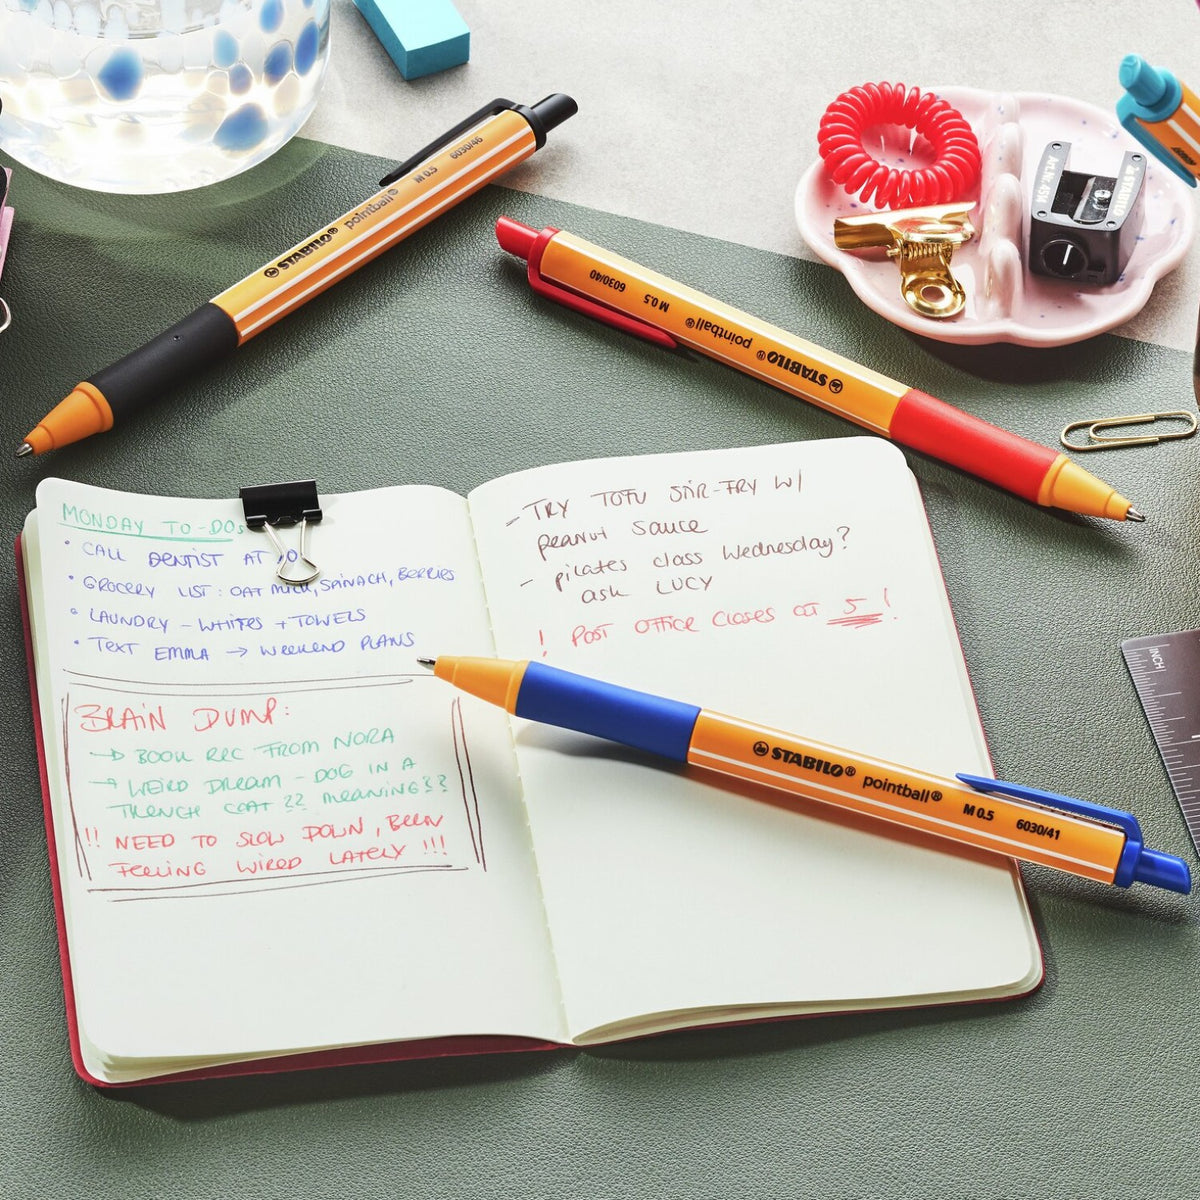 STABILO® pointball® M 0.5 6030/46
STABILO® pointball® M 0.5 6030/40
Art.Nr. 4514 STABILO
MONDAY TO-DOs
• CALL DENTIST AT 10
• GROCERY LIST: OAT MILK, SPINACH, BERRIES
• LAUNDRY - WHITES + TOWELS
• TEXT EMMA → WEEKEND PLANS
BRAIN DUMP:
→ BOOK REC FROM NORA
→ WEIRD DREAM - DOG IN A
TRENCH COAT ?? MEANING??
!! NEED TO SLOW DOWN, BEEN
FEELING WIRED LATELY !!!
- TRY TOFU STIR-FRY W/
peanut sauce
- pilates class Wednesday?
ask LUCY
! POST OFFICE CLOSES AT 5 !
STABILO® pointball® M 0.5 6030/41
INCH